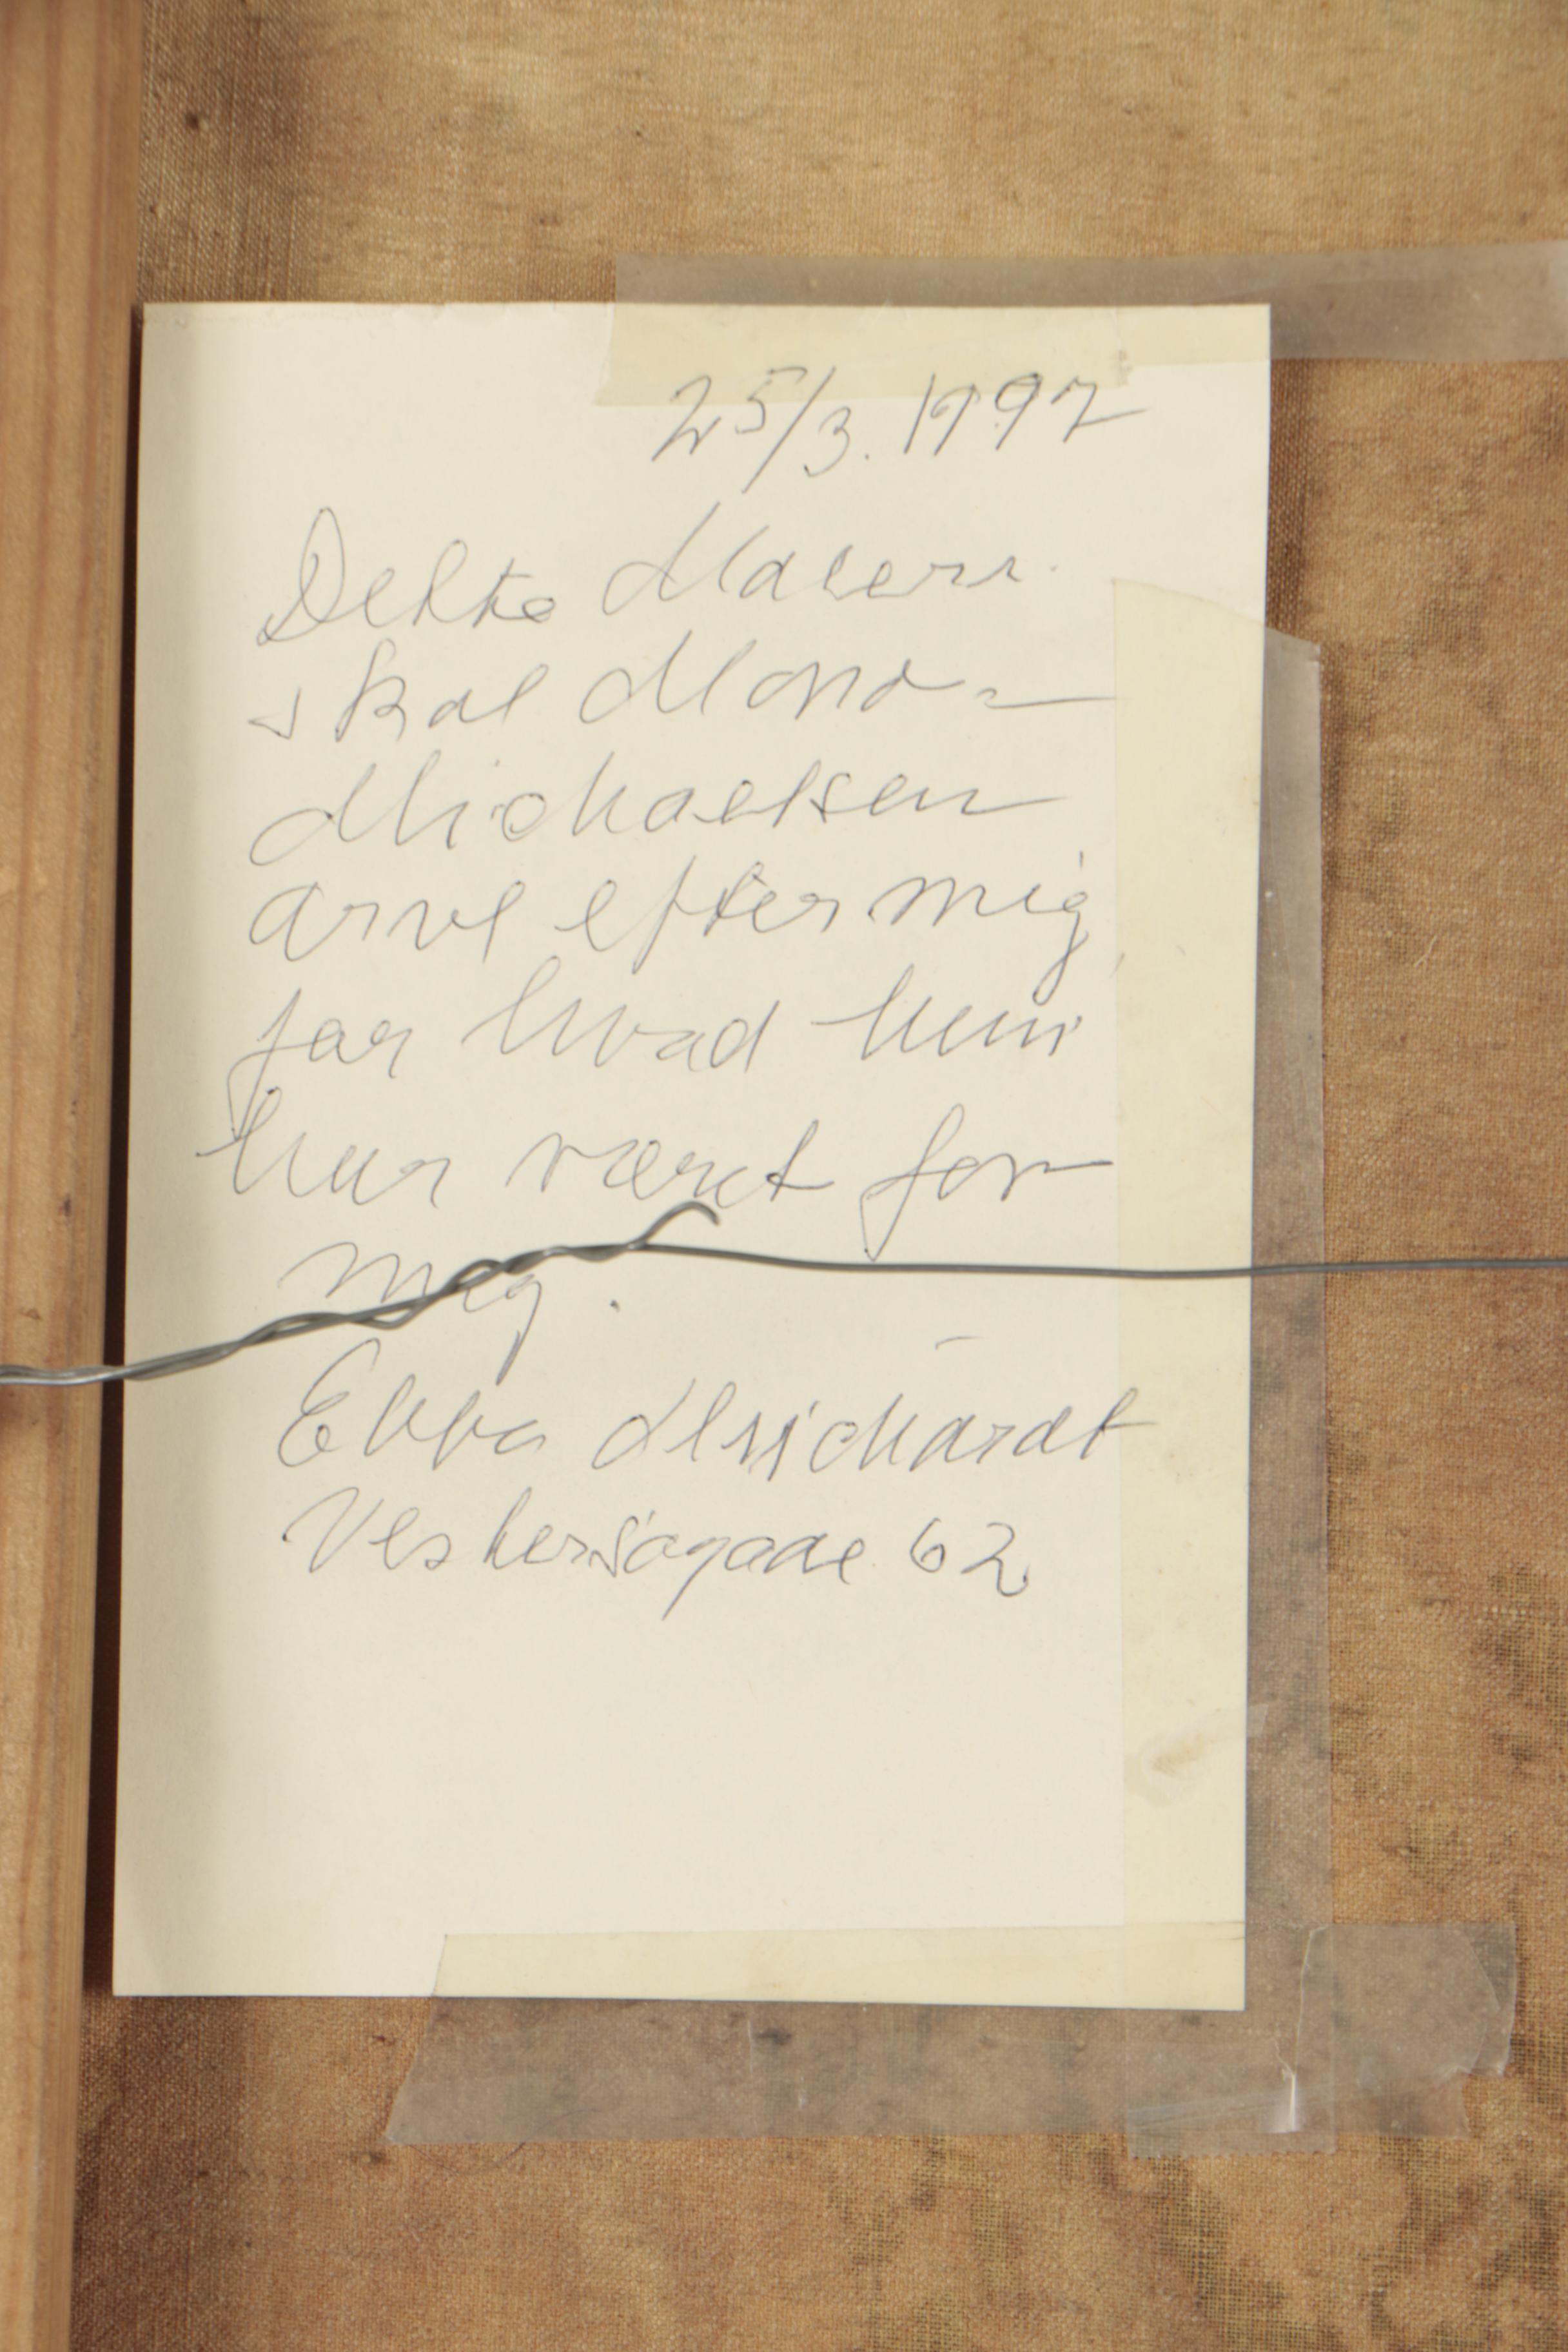 25/3. 1997
Dette Maleri
skal Mona
Michaelsen
arve efter mig
for hvad hun
har været for
mig.
Ebba
Vestersøgade 62